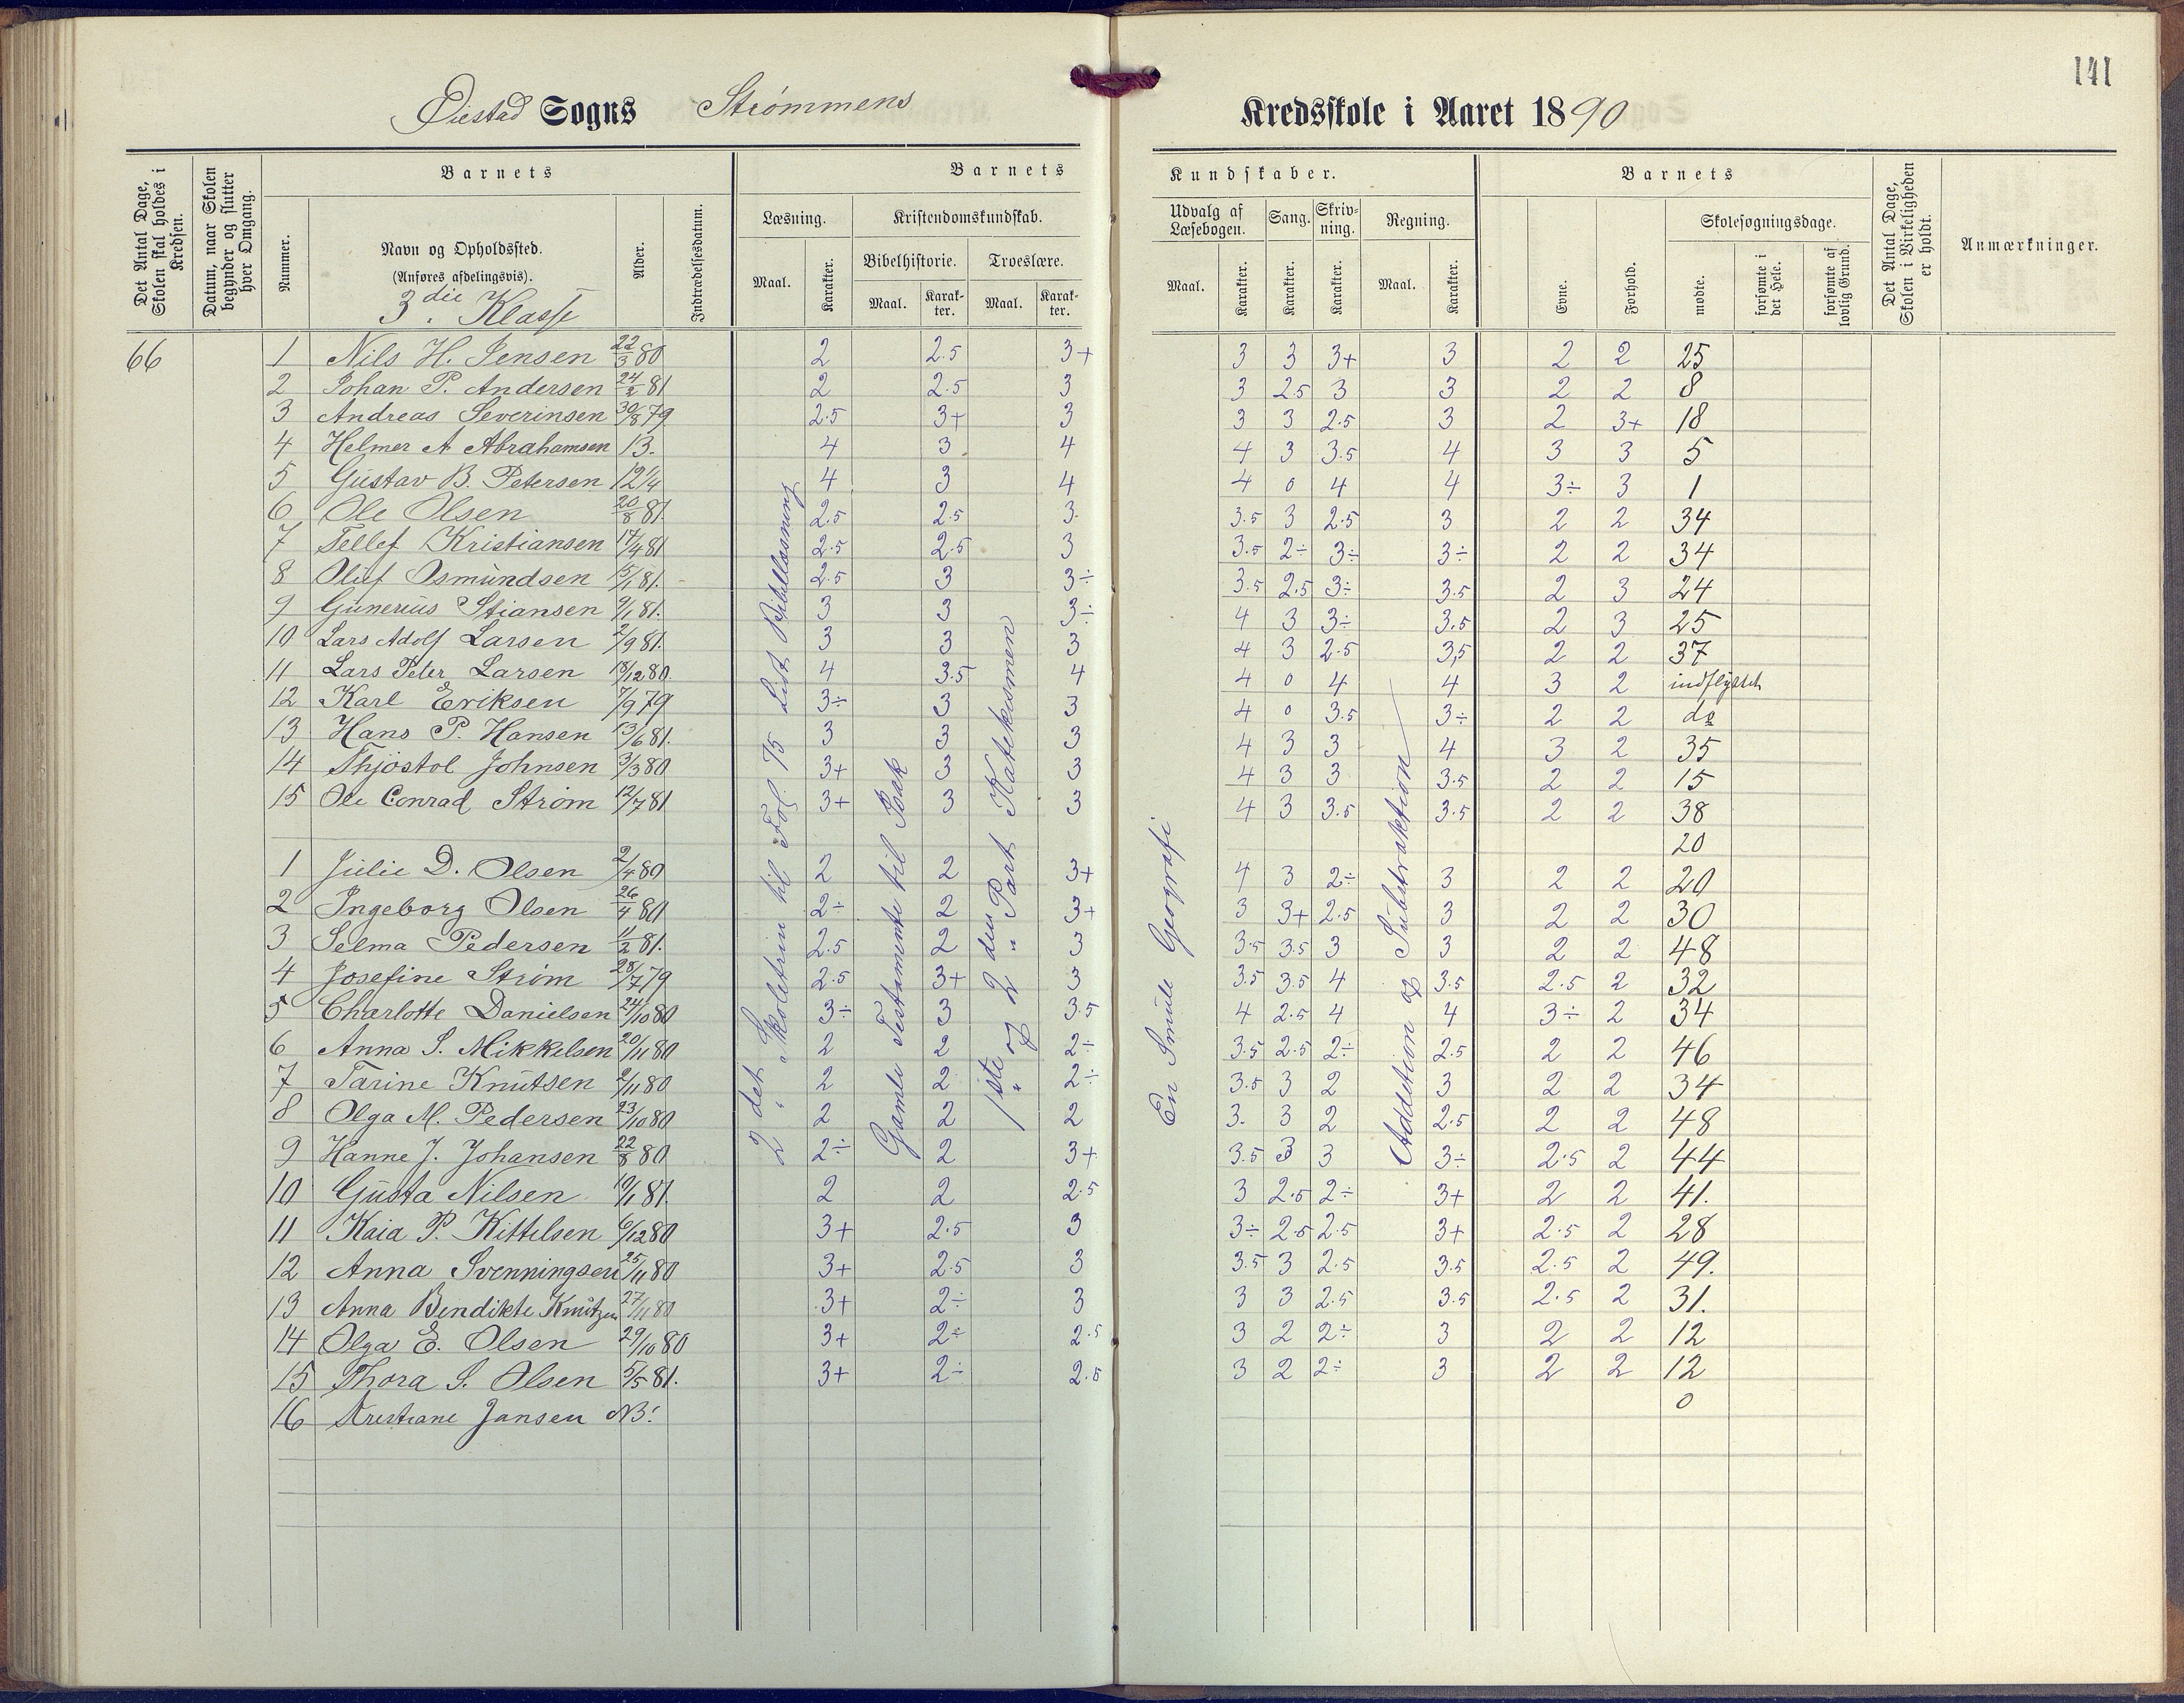 141
Øiestad Sogns Strømmens Kredsskole i Aaret 1890
Det Antal Dage, Skolen skal holdes i Kredsen.
Datum, naar Skolen begynder og slutter hver Omgang.
Barnets
Nummer.
Navn og Opholdssted.
(Anføres afdelingsvis).
3die Klasse
Alder.
Indtrædelsesdatum.
Barnets Kundskaber.
Læsning.
Maal.
Karakter.
Kristendomskundskab.
Bibelhistorie.
Maal.
Karakter.
Troeslære.
Maal.
Karakter.
Udvalg af Læsebogen.
Maal.
Karakter.
Sang.
Karakter.
Skrivning.
Karakter.
Regning.
Maal.
Karakter.
Barnets
Evne.
Forhold.
Skolesøgningsdage.
mødte.
forsømte i det Hele.
forsømte af lovlig Grund.
Det Antal Dage, Skolen i Virkeligheden er holdt.
Anmærkninger.
66
1 Nils H. Jensen 22/3 80 2 2.5 3+ 3 3 3+ 3 2 2 25
2 Johan P. Andersen 24/2 81 2 2.5 3 3 2.5 3 3 2 2 8
3 Andreas Severinsen 30/8 79 2.5 3+ 3 3 3 2.5 3 2 3+ 18
4 Helmer A Abrahamsen 13. 4 3 4 4 3 3.5 4 3 3 5
5 Gustav B. Petersen 12 1/4 4 3 4 4 0 4 4 3÷ 3 1
6 Ole Olsen 20/8 81. 2.5 2.5 3. 3.5 3 2.5 3 2 2 34
7 Tellef Kristiansen 14/4 81 2.5 2.5 3 3.5 2÷ 3÷ 3÷ 2 2 34
8 Oluf Osmundsen 15/1 81. 2.5 3 3÷ 3.5 2.5 3÷ 3.5 2 3 24
9 Gunerius Stiansen 9/1 81. 3 3 3÷ 4 3 3÷ 3.5 2 3 25
10 Lars Adolf Larsen 2/9 81. 3 3 3 4 3 2.5 3,5 2 2 37
11 Lars Peter Larsen 18/12 80. 4 3.5 4 4 0 4 4 3 2 indflyttet
12 Karl Eriksen 7/9 79 3÷ 3 3 4 0 3.5 3÷ 2 2 do
13 Hans P. Hansen 13/6 81. 3 3 3 4 3 3 4 3 2 35
14 Thjøstol Johnsen 3/3 80 3+ 3 3 4 3 3 3.5 2 2 15
15 Ole Conrad Strøm 12/7 81 3+ 3 3 4 3 3.5 3.5 2 2 38
20
1 Julie D. Olsen 2/4 80 2 2 3+ 4 3 2÷ 3 2 2 20
2 Ingeborg Olsen 26/4 80 2÷ 2 3+ 3 3+ 2.5 3 2 2 30
3 Selma Pedersen 11/2 81. 2.5 2 3 3.5 3.5 3 3 2 2 48
4 Josefine Strøm 28/7 79 2.5 3+ 3 3.5 3.5 4 3.5 2.5 2 32
5 Charlotte Danielsen 24/10 80 3÷ 3 3.5 4 2.5 4 4 3÷ 2 34
6 Anna S. Mikkelsen 20/11 80 2 2 2÷ 3.5 2.5 2÷ 2.5 2 2 46
7 Tarine Knutsen 2/11 80 2 2 2÷ 3.5 3 2 3 2 2 34
8 Olga M. Pedersen 23/10 80 2 2 2 3. 3 2 2.5 2 2 48
9 Hanne J. Johansen 22/8 80 2÷ 2 3+ 3.5 3 3 3÷ 2.5 2 44
10 Gusta Nilsen 10/1 81. 2 2 2.5 3 2.5 2÷ 3+ 2 2 41.
11 Kaia P. Kittelsen 6/12 80 3+ 2.5 3 3÷ 2.5 2.5 3+ 2.5 2 28
12 Anna Svenningsen 25/11 80 3+ 2.5 3 3.5 3 2.5 3.5 2.5 2 49.
13 Anna Bendikte Knutzen 27/11 80 3+ 2÷ 3 3 3 2.5 3.5 2.5 2 31.
14 Olga E. Olsen 29/10 80 3+ 2÷ 2.5 3 2 2÷ 3 2 2 12
15 Thora S. Olsen 5/5 81. 3+ 2÷ 2.5 3 2 2÷ 3 2 2 12
16 Kristiane Jansen NB! 0
2det Skoletrin til Fol. 75 Lidt Bibellæsning
Gamle Testamente til Isak
1ste og 2den Part Katekismen
En Smule Geografi
Addetion & Subtraktion